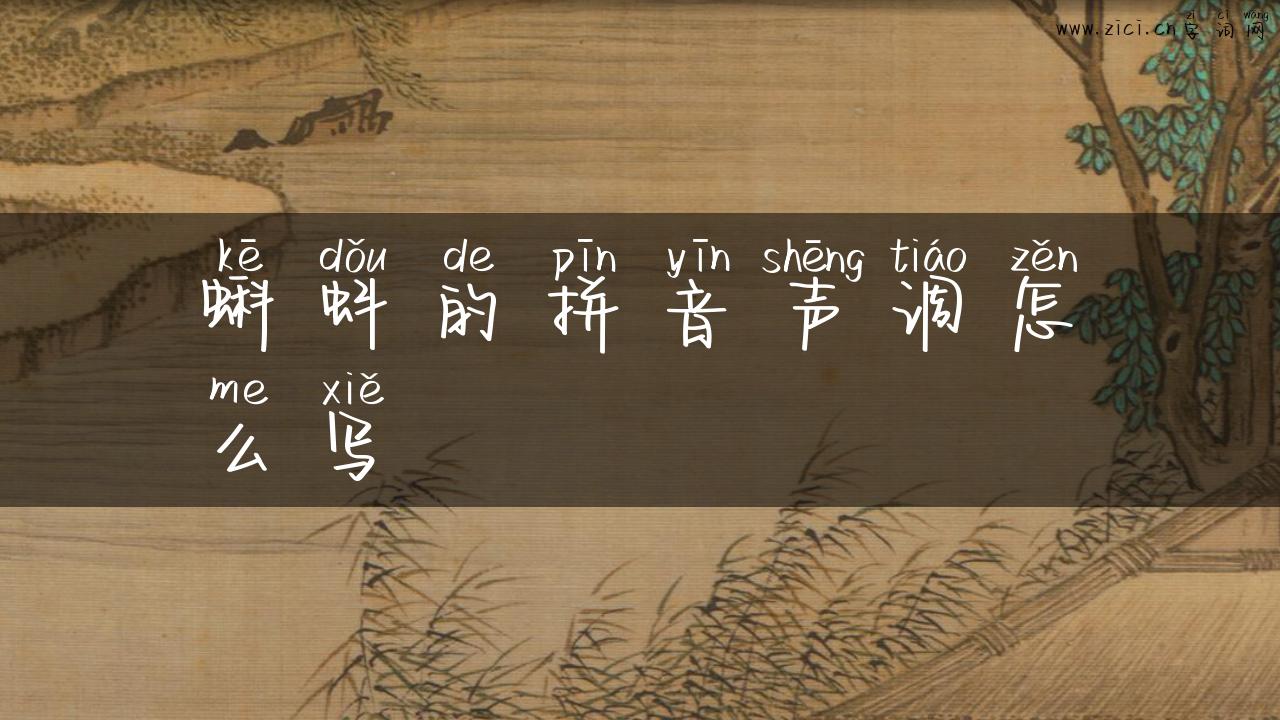 zì cí wǎng
www.zici.cn字词网
kē dǒu de pīn yīn shēng tiáo zěn
蝌蚪的拼音声调怎
me xiě
么写